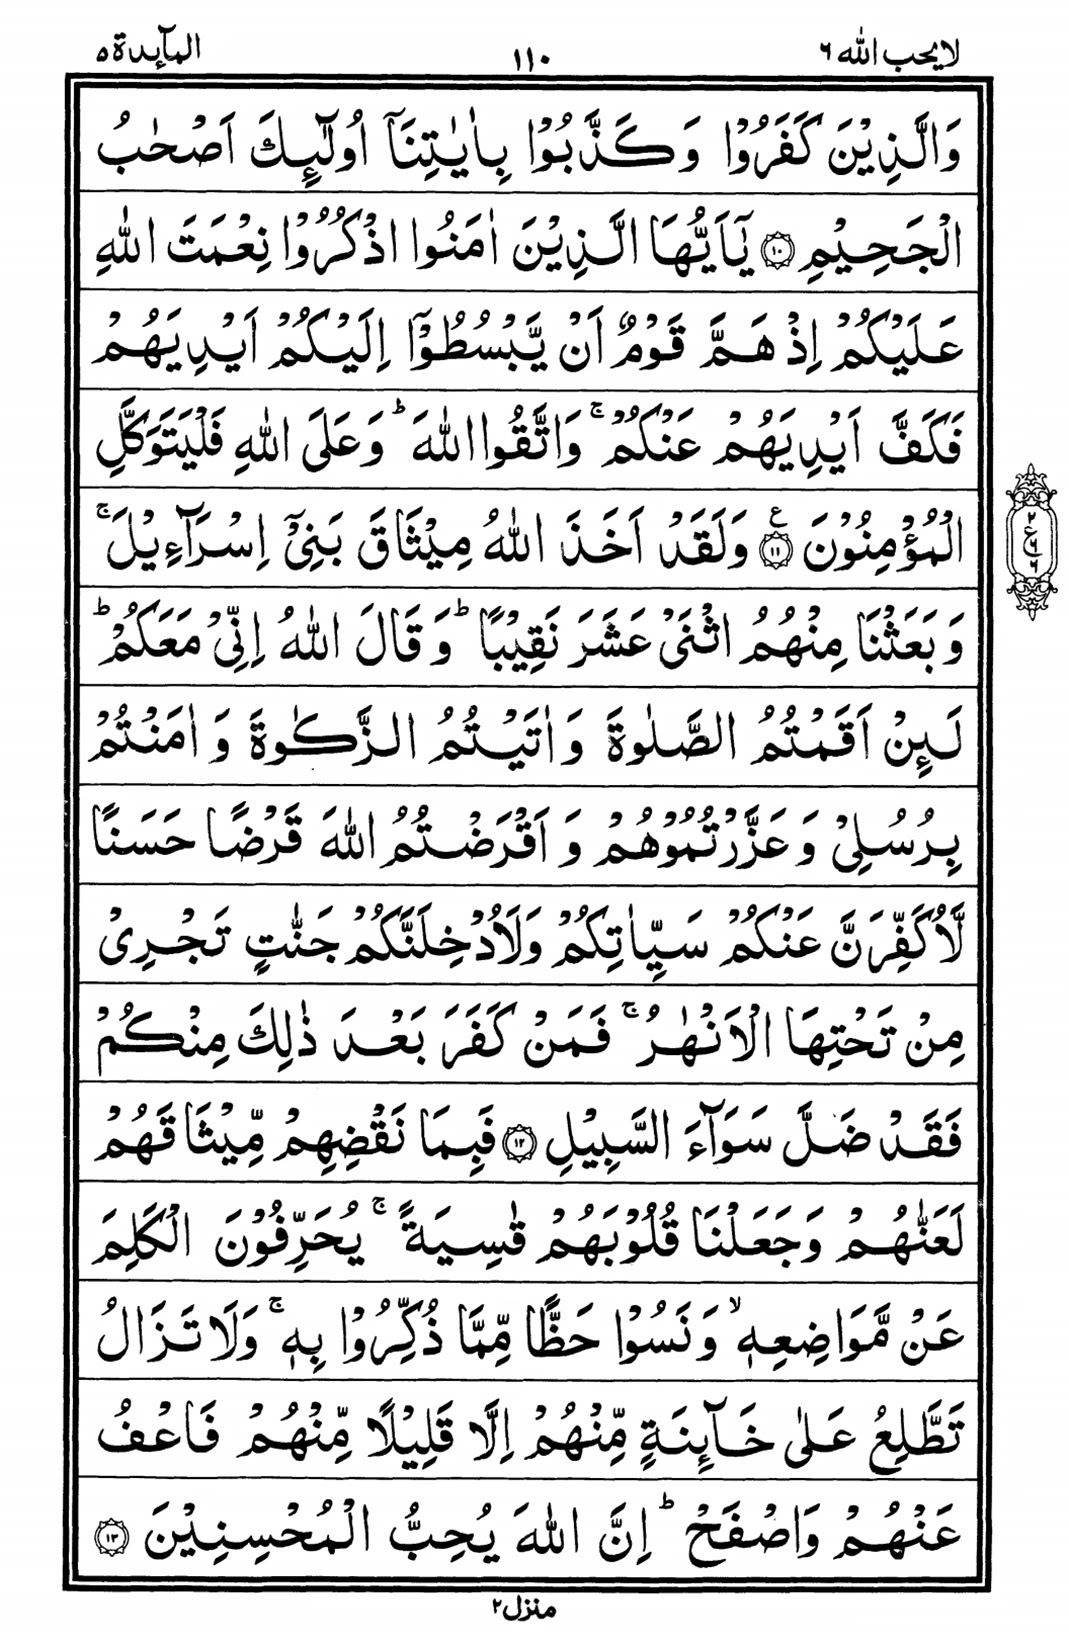 لایحب الله ۶
۱۱۰
المآىِٕدة ۵
وَالَّذِیْنَ كَفَرُوْا وَ كَذَّبُوْا بِاٰیٰتِنَاۤ اُولٰٓىِٕكَ اَصْحٰبُ
الْجَحِیْمِ ۝۱۰ یٰۤاَیُّهَا الَّذِیْنَ اٰمَنُوا اذْكُرُوْا نِعْمَتَ اللّٰهِ
عَلَیْكُمْ اِذْ هَمَّ قَوْمٌ اَنْ یَّبْسُطُوْۤا اِلَیْكُمْ اَیْدِیَهُمْ
فَكَفَّ اَیْدِیَهُمْ عَنْكُمْ ۚ وَاتَّقُوا اللّٰهَ ؕ وَعَلَی اللّٰهِ فَلْیَتَوَكَّلِ
الْمُؤْمِنُوْنَ ۝۱۱ ع وَلَقَدْ اَخَذَ اللّٰهُ مِیْثَاقَ بَنِیْۤ اِسْرَآءِیْلَ ۚ
وَ بَعَثْنَا مِنْهُمُ اثْنَیْ عَشَرَ نَقِیْبًا ؕ وَ قَالَ اللّٰهُ اِنِّیْ مَعَكُمْ ؕ
لَىِٕنْ اَقَمْتُمُ الصَّلٰوةَ وَ اٰتَیْتُمُ الزَّكٰوةَ وَ اٰمَنْتُمْ
بِرُسُلِیْ وَ عَزَّرْتُمُوْهُمْ وَ اَقْرَضْتُمُ اللّٰهَ قَرْضًا حَسَنًا
لَّاُكَفِّرَنَّ عَنْكُمْ سَیِّاٰتِكُمْ وَلَاُدْخِلَنَّكُمْ جَنّٰتٍ تَجْرِیْ
مِنْ تَحْتِهَا الْاَنْهٰرُ ۚ فَمَنْ كَفَرَ بَعْدَ ذٰلِكَ مِنْكُمْ
فَقَدْ ضَلَّ سَوَآءَ السَّبِیْلِ ۝۱۲ فَبِمَا نَقْضِهِمْ مِّیْثَاقَهُمْ
لَعَنّٰهُمْ وَجَعَلْنَا قُلُوْبَهُمْ قٰسِیَةً ۚ یُحَرِّفُوْنَ الْكَلِمَ
عَنْ مَّوَاضِعِهٖ ۙ وَنَسُوْا حَظًّا مِّمَّا ذُكِّرُوْا بِهٖ ۚ وَلَا تَزَالُ
تَطَّلِعُ عَلٰی خَآىِٕنَةٍ مِّنْهُمْ اِلَّا قَلِیْلًا مِّنْهُمْ فَاعْفُ
عَنْهُمْ وَاصْفَحْ ؕ اِنَّ اللّٰهَ یُحِبُّ الْمُحْسِنِیْنَ ۝۱۳
۲
ع ۶
۶
منزل ۲